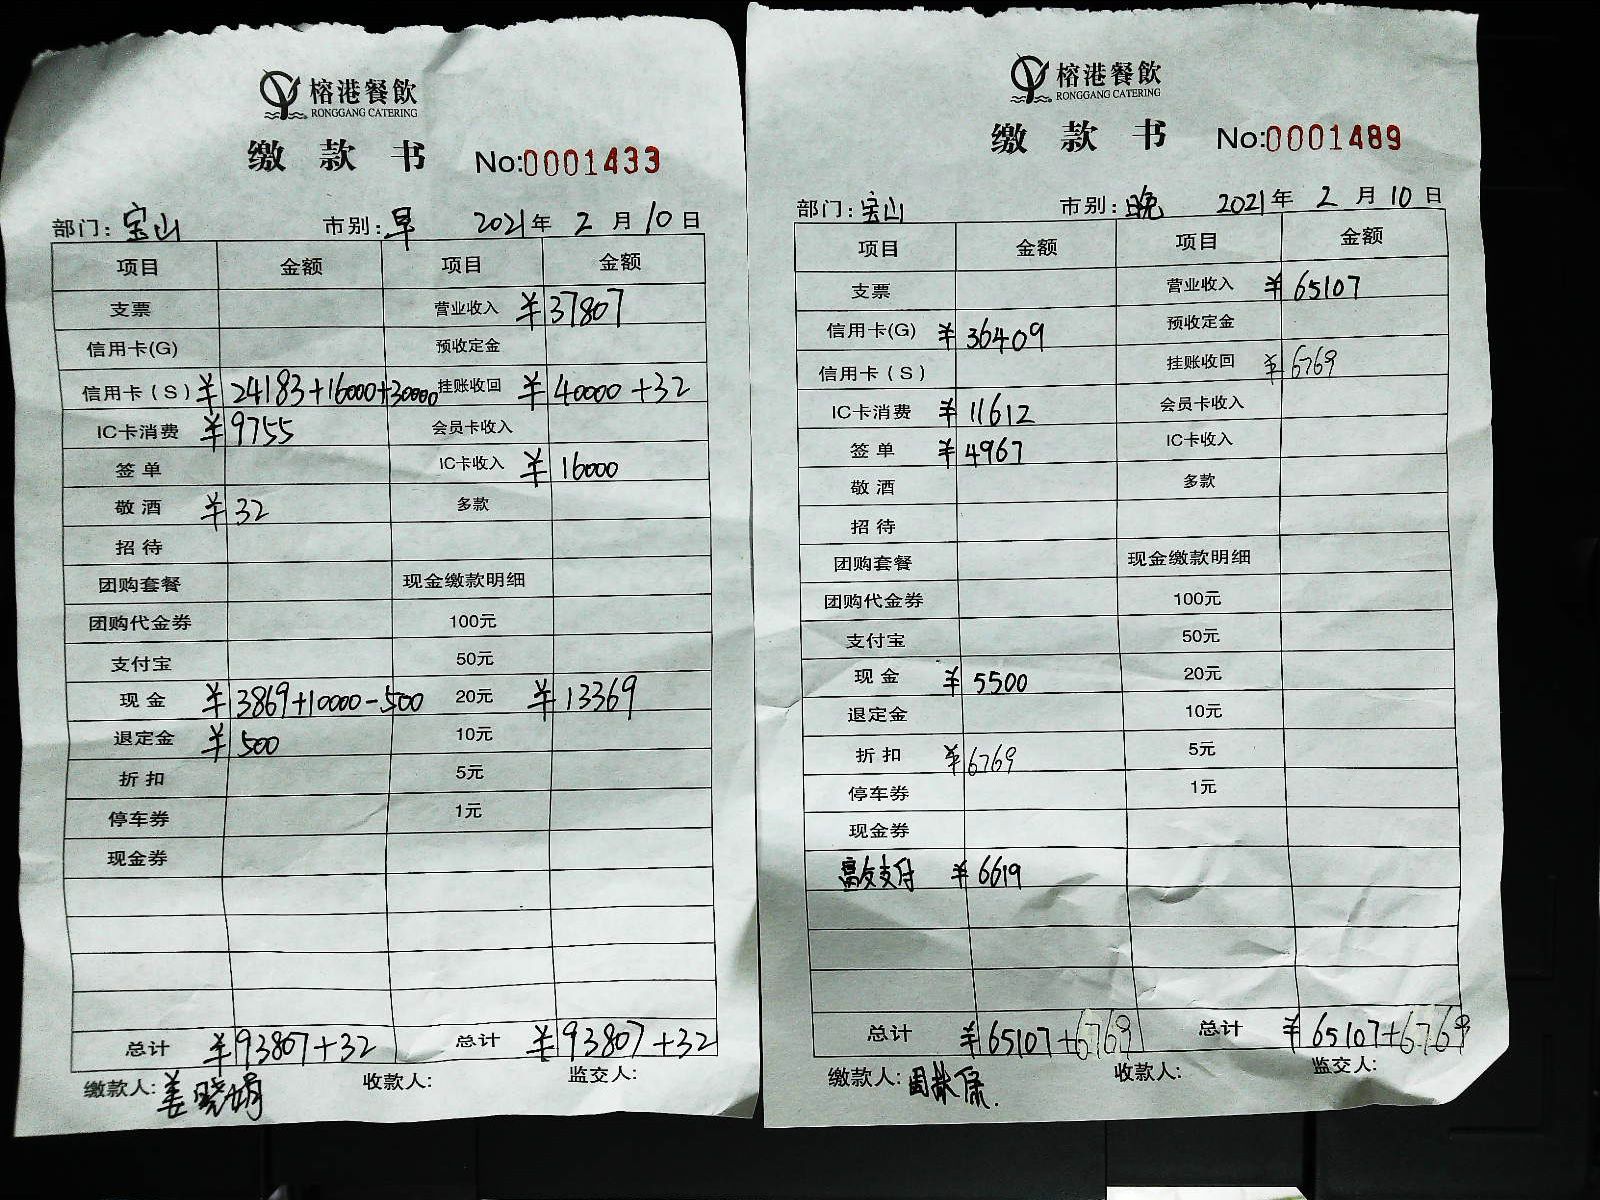 榕港餐飲
RONGGANG CATERING
缴款书 No:0001433
部门:宝山 市别:早 2021年2月10日
项目 金额 项目 金额
支票 营业收入 ¥37807
信用卡(G) 预收定金
信用卡(S) ¥24183+16000+30000 挂账收回 ¥40000+32
IC卡消费 ¥9755 会员卡收入
签单 IC卡收入 ¥16000
敬酒 ¥32 多款
招待
团购套餐 现金缴款明细
团购代金券 100元
支付宝 50元
现金 ¥3869+10000-500 20元 ¥13369
退定金 ¥500 10元
折扣 5元
停车券 1元
现金券
总计 ¥93807+32 总计 ¥93807+32
缴款人:姜晓娟 收款人: 监交人:
榕港餐飲
RONGGANG CATERING
缴款书 No:0001489
部门:宝山 市别:晚 2021年2月10日
项目 金额 项目 金额
支票 营业收入 ¥65107
信用卡(G) ¥36409 预收定金
信用卡(S) 挂账收回 ¥6769
IC卡消费 ¥11612 会员卡收入
签单 ¥4967 IC卡收入
敬酒 多款
招待
团购套餐 现金缴款明细
团购代金券 100元
支付宝 50元
现金 ¥5500 20元
退定金 10元
折扣 ¥6769 5元
停车券 1元
现金券
支付 ¥6619
总计 ¥65107+6769 总计 ¥65107+6769
缴款人:周 收款人: 监交人: